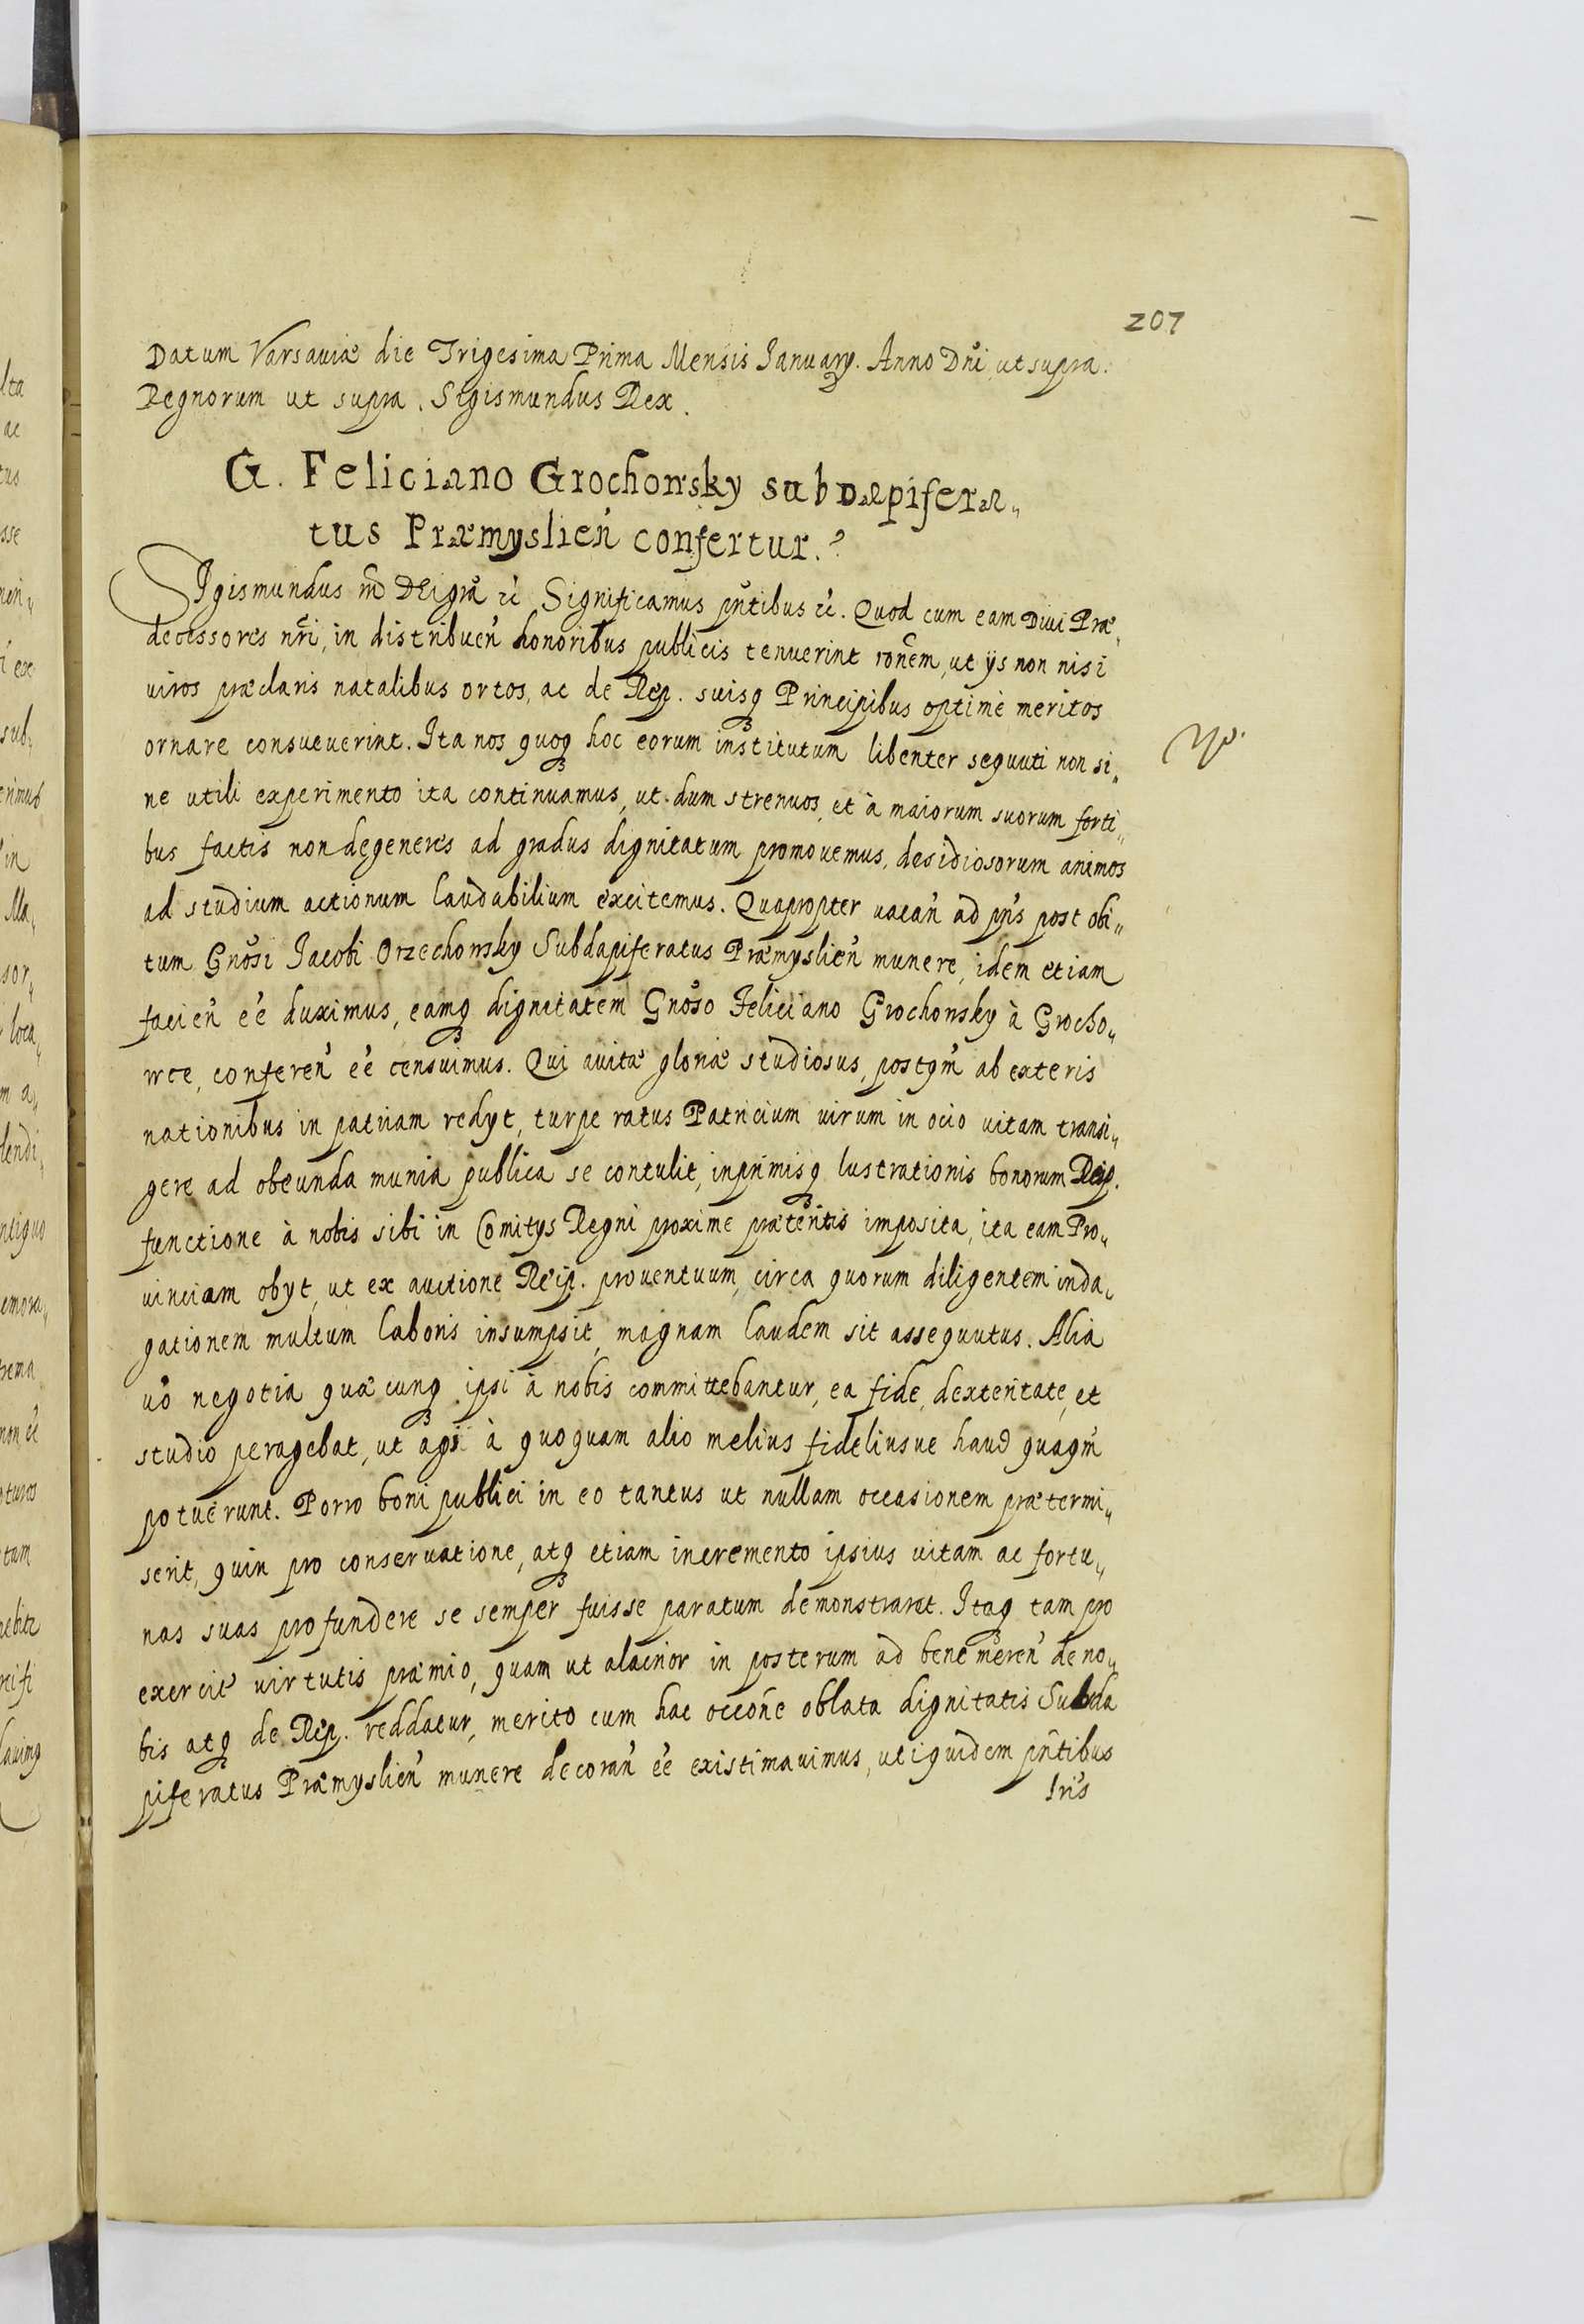 207
Datum Varsauiæ die Trigesima Prima Mensis Ianuarÿ. Anno Dñi ut supra.
Regnorum ut supra. Sigismundus Rex.
G. Feliciano Grochowsky subdapifera„
tus Præmyslien̄ confertur.
Sigismundus Dei grã Significamus pñtibus. Quod cum eam Diui Præ„
decessores nr̃i, in distribuen̄ honoribus publicis tenuerint rōnem, ut ÿs non nisi
uiros præclaris natalibus ortos, ac de Rep. suisq₃ Principibus optimè meritos
ornare consueuerint. Ita nos quoq₃ hoc eorum institutum libenter sequuti non si„
ne utili experimento ita continuamus, ut dum strenuos, et à maiorum suorum forti„
bus factis non degeneres ad gradus dignitatum promouemus, desidiosorum animos
ad studium actionum laudabilium excitemus. Quapropter uacan̄ ad pn̄s post obi„
tum Gnõsi Iacobi Orzechowsky Subdapiferatus Præmyslien̄ munere, idem etiam
facien̄ eē duximus, eamq₃ dignitatem Gnõso Feliciano Grochowsky à Grocho„
wce, conferen̄ eē censuimus. Qui auitæ gloriæ studiosus, postqm̄ ab exteris
nationibus in patriam redÿt, turpe ratus Patricium uirum in ocio uitam transi„
gere ad obeunda munia publica se contulit, inprimisq₃ lustrationis bonorum Reip.
functione à nobis sibi in Comitÿs Regni proxime præteritis imposita, ita eam Pro„
uinciam obÿt, ut ex auctione Reip. prouentuum, circa quorum diligentem inda„
gationem multum laboris insumpsit, magnam laudem sit assequutus. Alia
uō negotia quæcunq₃ ipsi à nobis committebantur, ea fide, dexteritate, et
studio peragebat, ut agi à quoquam alio melius fideliusue haud quaqm̄
potuerunt. Porro boni publici in eo tantus ut nullam occasionem prætermi„
serit, quin pro conseruatione, atq₃ etiam incremento ipsius uitam ac fortu„
nas suas profundere se semper fuisse paratum demonstrarat. Itaq₃ tam pro
exercitē uirtutis præmio, quam ut alacrior in posterum ad bene meren̄ de no„
bis atq₃ de Rep. reddatur, merito eum hac occōne oblata dignitatis Subda
piferatus Præmyslien̄ munere decoran̄ eē existimauimus, uti quidem pñtibus
lr̃is